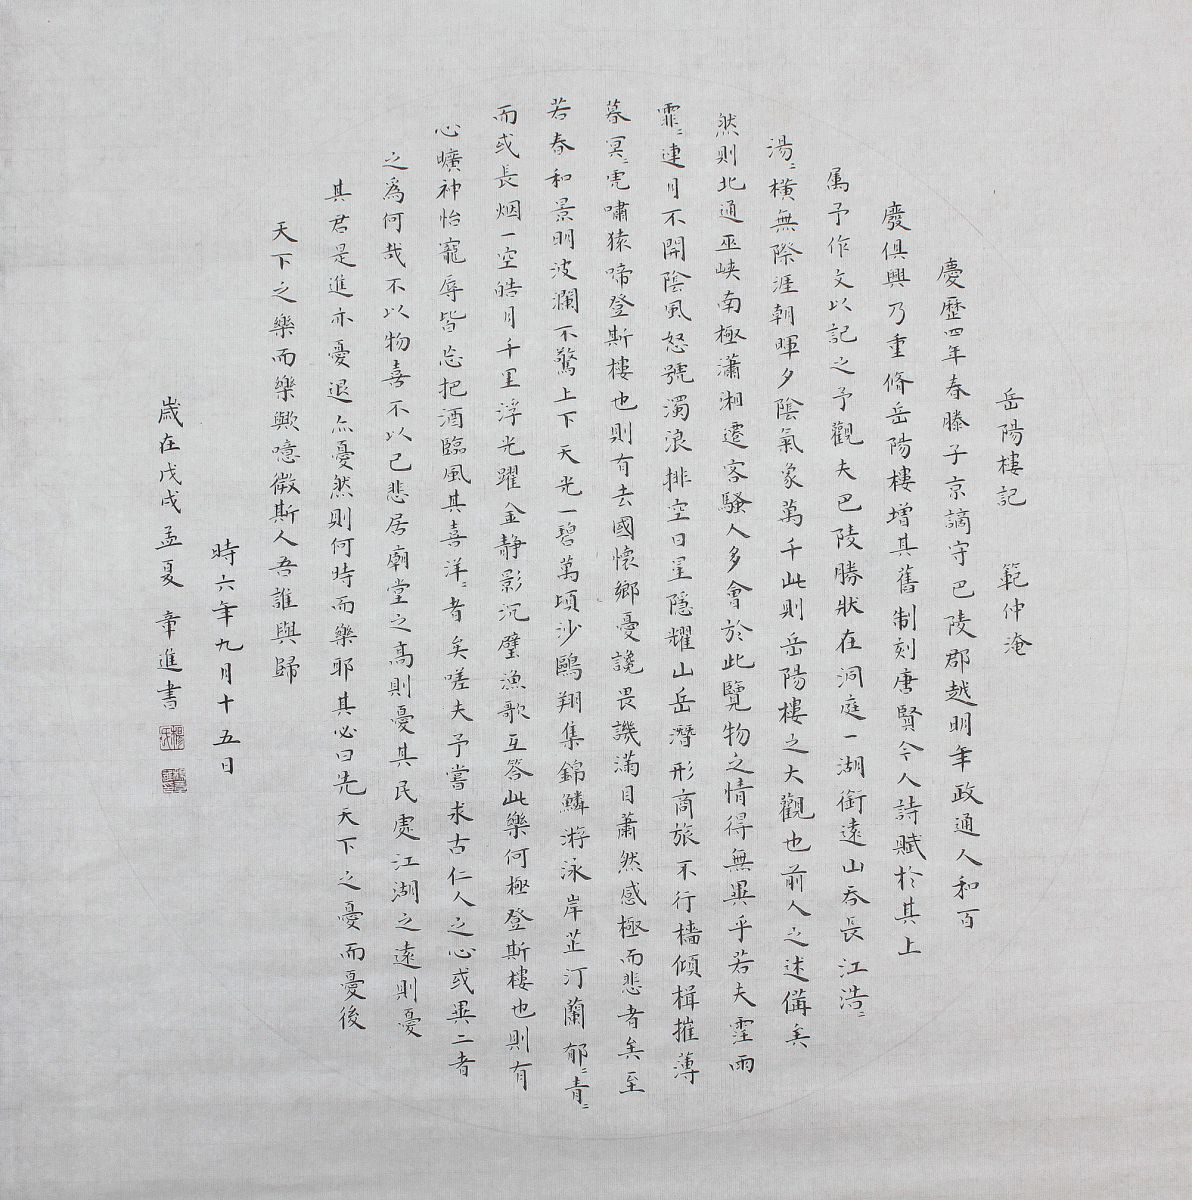 岳陽樓記 範仲淹
慶歷四年春滕子京謫守巴陵郡越明年政通人和百
廢俱興乃重脩岳陽樓增其舊制刻唐賢今人詩賦於其上
属予作文以記之予觀夫巴陵勝狀在洞庭一湖銜遠山吞長江浩〻
湯〻橫無際涯朝暉夕陰氣象萬千此則岳陽樓之大觀也前人之述備矣
然則北通巫峽南極瀟湘遷客騷人多會於此覽物之情得無異乎若夫霪雨
霏〻連月不開陰風怒號濁浪排空日星隱耀山岳潛形商旅不行檣傾楫摧薄
暮冥〻虎嘯猿啼登斯樓也則有去國懷鄉憂讒畏譏滿目蕭然感極而悲者矣至
若春和景明波瀾不驚上下天光一碧萬頃沙鷗翔集錦鱗游泳岸芷汀蘭郁〻青〻
而或長烟一空皓月千里浮光躍金静影沉璧漁歌互答此樂何極登斯樓也則有
心曠神怡寵辱皆忘把酒臨風其喜洋〻者矣嗟夫予嘗求古仁人之心或異二者
之為何哉不以物喜不以己悲居廟堂之高則憂其民處江湖之遠則憂
其君是進亦憂退亦憂然則何時而樂耶其必曰先天下之憂而憂後
天下之樂而樂歟噫微斯人吾誰與歸
時六年九月十五日
歲在戊戌孟夏 章進書